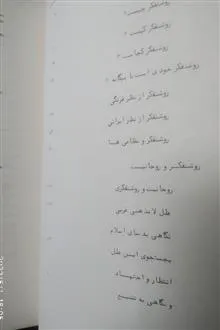 روشنفکر چیست؟
روشنفکر کیست؟
روشنفکر کجاست؟
روشنفکر خودی است یا بیگانه؟
روشنفکر از نظر فرنگی
روشنفکر از نظر ایرانی
روشنفکر و نظامی ها
روشنفکر و روحانیت
روحانیت و روشنفکری
علل لامذهبی غربی
نگاهی به دنیای اسلام
بجستجوی این علل
انتظار و اجتهاد
و نگاهی به تشیع